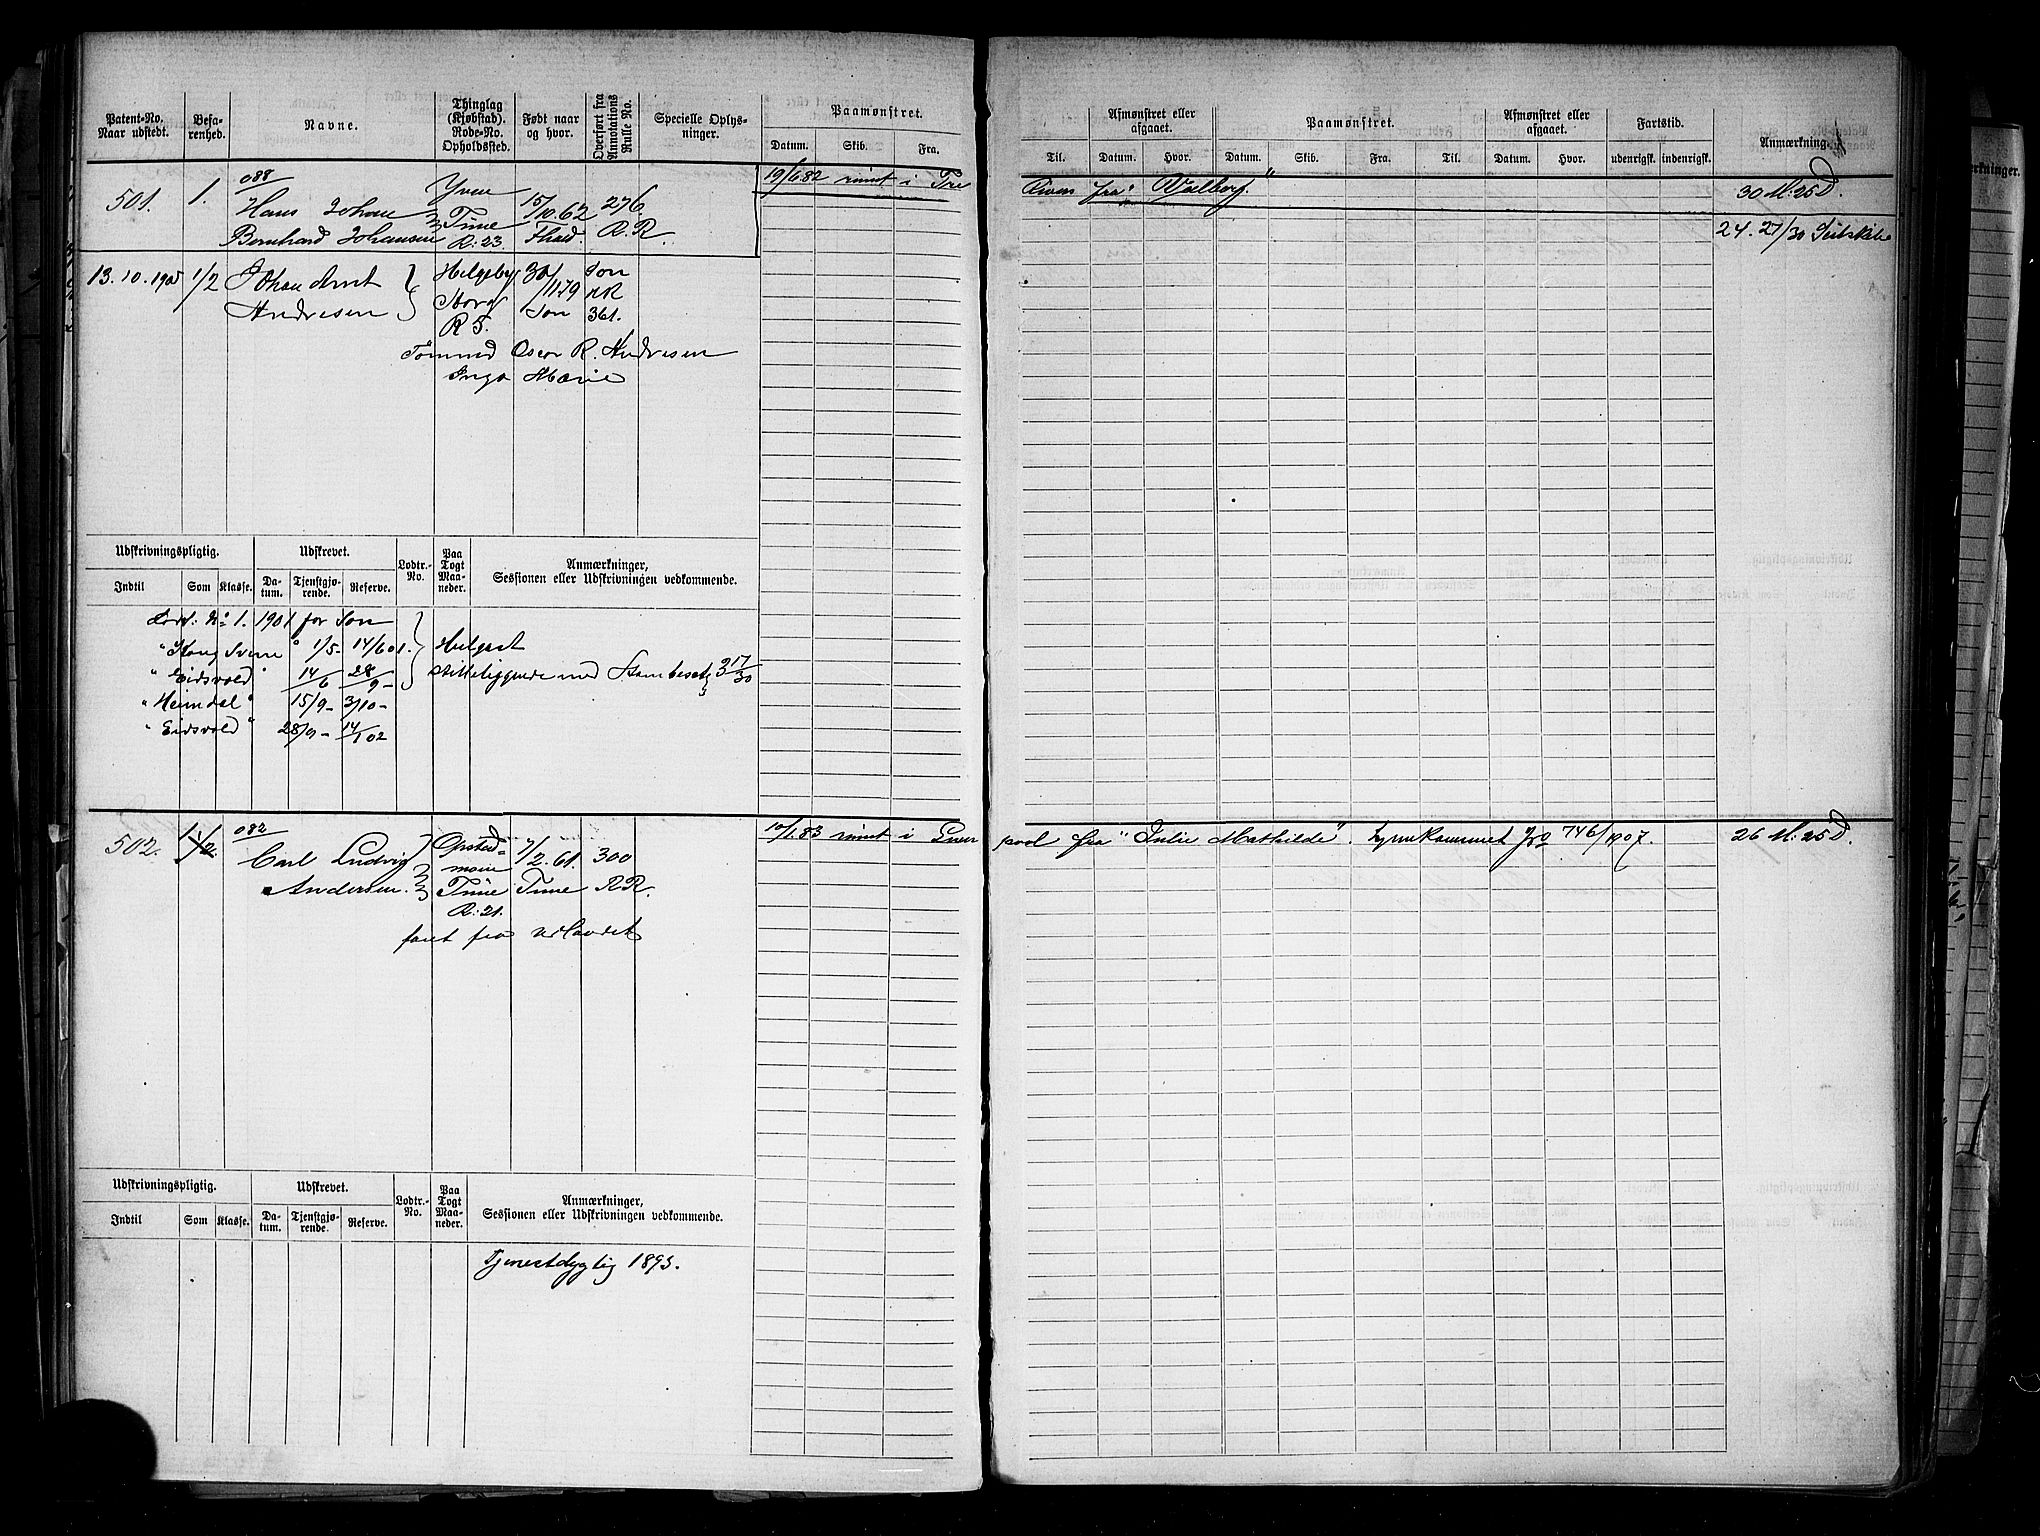 Patent-No. Naar udstedt. Befarenhed. Navne. Thinglag (Kjøbstad). Rode-No. Opholdssted. Født naar og hvor. Overført fra Annotations Rulle No. Specielle Oplysninger. Paamønstret. Datum. Skib. Fra.
Til. Afmønstret eller afgaaet. Datum. Hvor. Paamønstret. Datum. Skib. Fra. Til. Afmønstret eller afgaaet. Datum. Hvor. Fartstid. udenrigsk. indenrigsk. Anmærkning.
088 19/6.82 rømt i Tre
501. 1. Hans Johan Tune 15/10.62 276.
Bernhard Johansen R: 23. R.R.
fra "Valborg" 30 M. 25 D.
24. 27/30
13.10.190 1/2 Johan Arnt 30/11.79 Son
Andresen R 5. Son 361.
Tømmd Oscar R. Andresen
Inga Marie
Udskrivningspligtig. Udskrevet. Lodtr.-No. Paa Togt Maaneder. Anmærkninger, Sessionen eller Udskrivningen vedkommende.
Indtil Som Klasse. Datum. Tjenstgjørende. Reserve.
No 1. 1901 for Son
"Kong Sverre" 1/5- 14/6 01.
"Eidsvold" 14/6 28/9 - med 3 17/30
"Heimdal" 15/9- 3/10-
"Eidsvold" 28/9- 14/1 02
082 83 rømt i Liver
502. 1/2 Carl Ludvig 7/2.61. 300
Andersen. Tune Tune RR.
R: 21.
faret fra udlandet
pool fra "Julie Mathilde". 746/1907. 26 M. 25 D.
Udskrivningspligtig. Udskrevet. Lodtr.-No. Paa Togt Maaneder. Anmærkninger, Sessionen eller Udskrivningen vedkommende.
Indtil Som Klasse. Datum. Tjenstgjørende. Reserve.
Tjenestdygtig 1893.